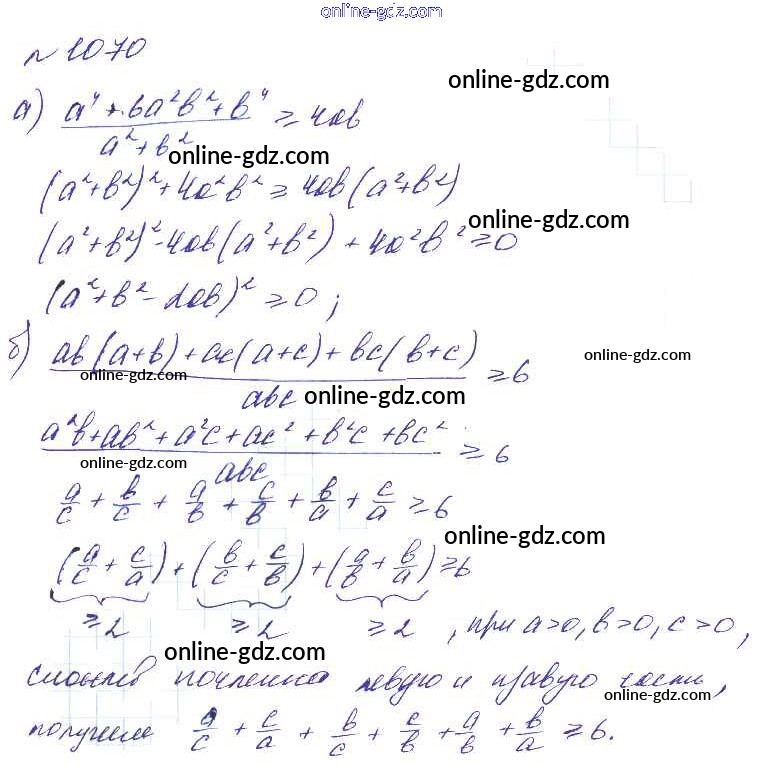 online-gdz.com
№ 1070
online-gdz.com
а) (a⁴ + 6a²b² + b⁴)/(a² + b²) ≥ 4ab
online-gdz.com
(a² + b²)² + 4a²b² ≥ 4ab(a² + b²)
online-gdz.com
(a² + b²)² - 4ab(a² + b²) + 4a²b² ≥ 0
(a² + b² - 2ab)² ≥ 0;
б) (ab(a+b) + ac(a+c) + bc(b+c))/abc ≥ 6
online-gdz.com
online-gdz.com
online-gdz.com
(a²b + ab² + a²c + ac² + b²c + bc²)/abc ≥ 6
online-gdz.com
a/c + b/c + a/b + c/b + b/a + c/a ≥ 6
online-gdz.com
(a/c + c/a) + (b/c + c/b) + (a/b + b/a) ≥ 6
≥ 2 ≥ 2 ≥ 2, при a>0, b>0, c>0,
online-gdz.com
сложив почленно левую и правую части,
online-gdz.com
получим a/c + c/a + b/c + c/b + a/b + b/a ≥ 6.
online-gdz.com